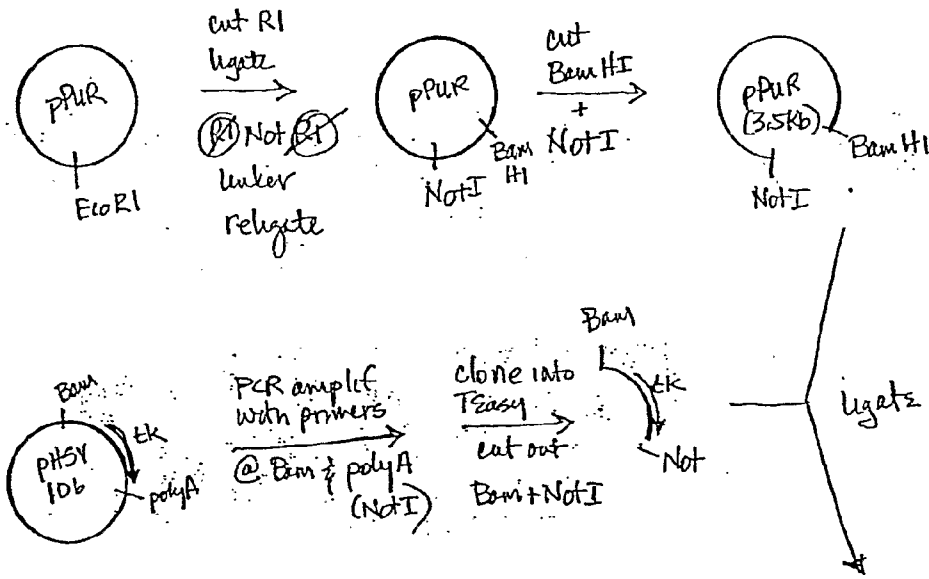 pPUR
EcoRI
cut RI
ligate
RI Not RI
linker
religate
pPUR
Bam
HI
NotI
cut
BamHI
+
NotI
pPUR
(3.5Kb)
BamHI
NotI
Bam
pHSV
106
tk
polyA
PCR amplif
with primers
@ Bam & polyA
(NotI)
clone into
TEasy
cut out
Bam+NotI
Bam
tk
Not
ligate